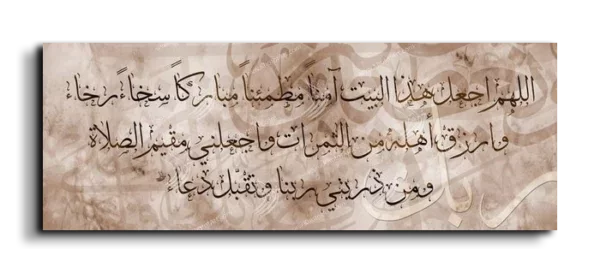 اللهم اجعل هذا البيت آمناً مطمئناً مباركاً سخاءً رخاء
وارزق أهله من الثمرات واجعلني مقيم الصلاة
ومن ذريتي ربنا وتقبل دعاء